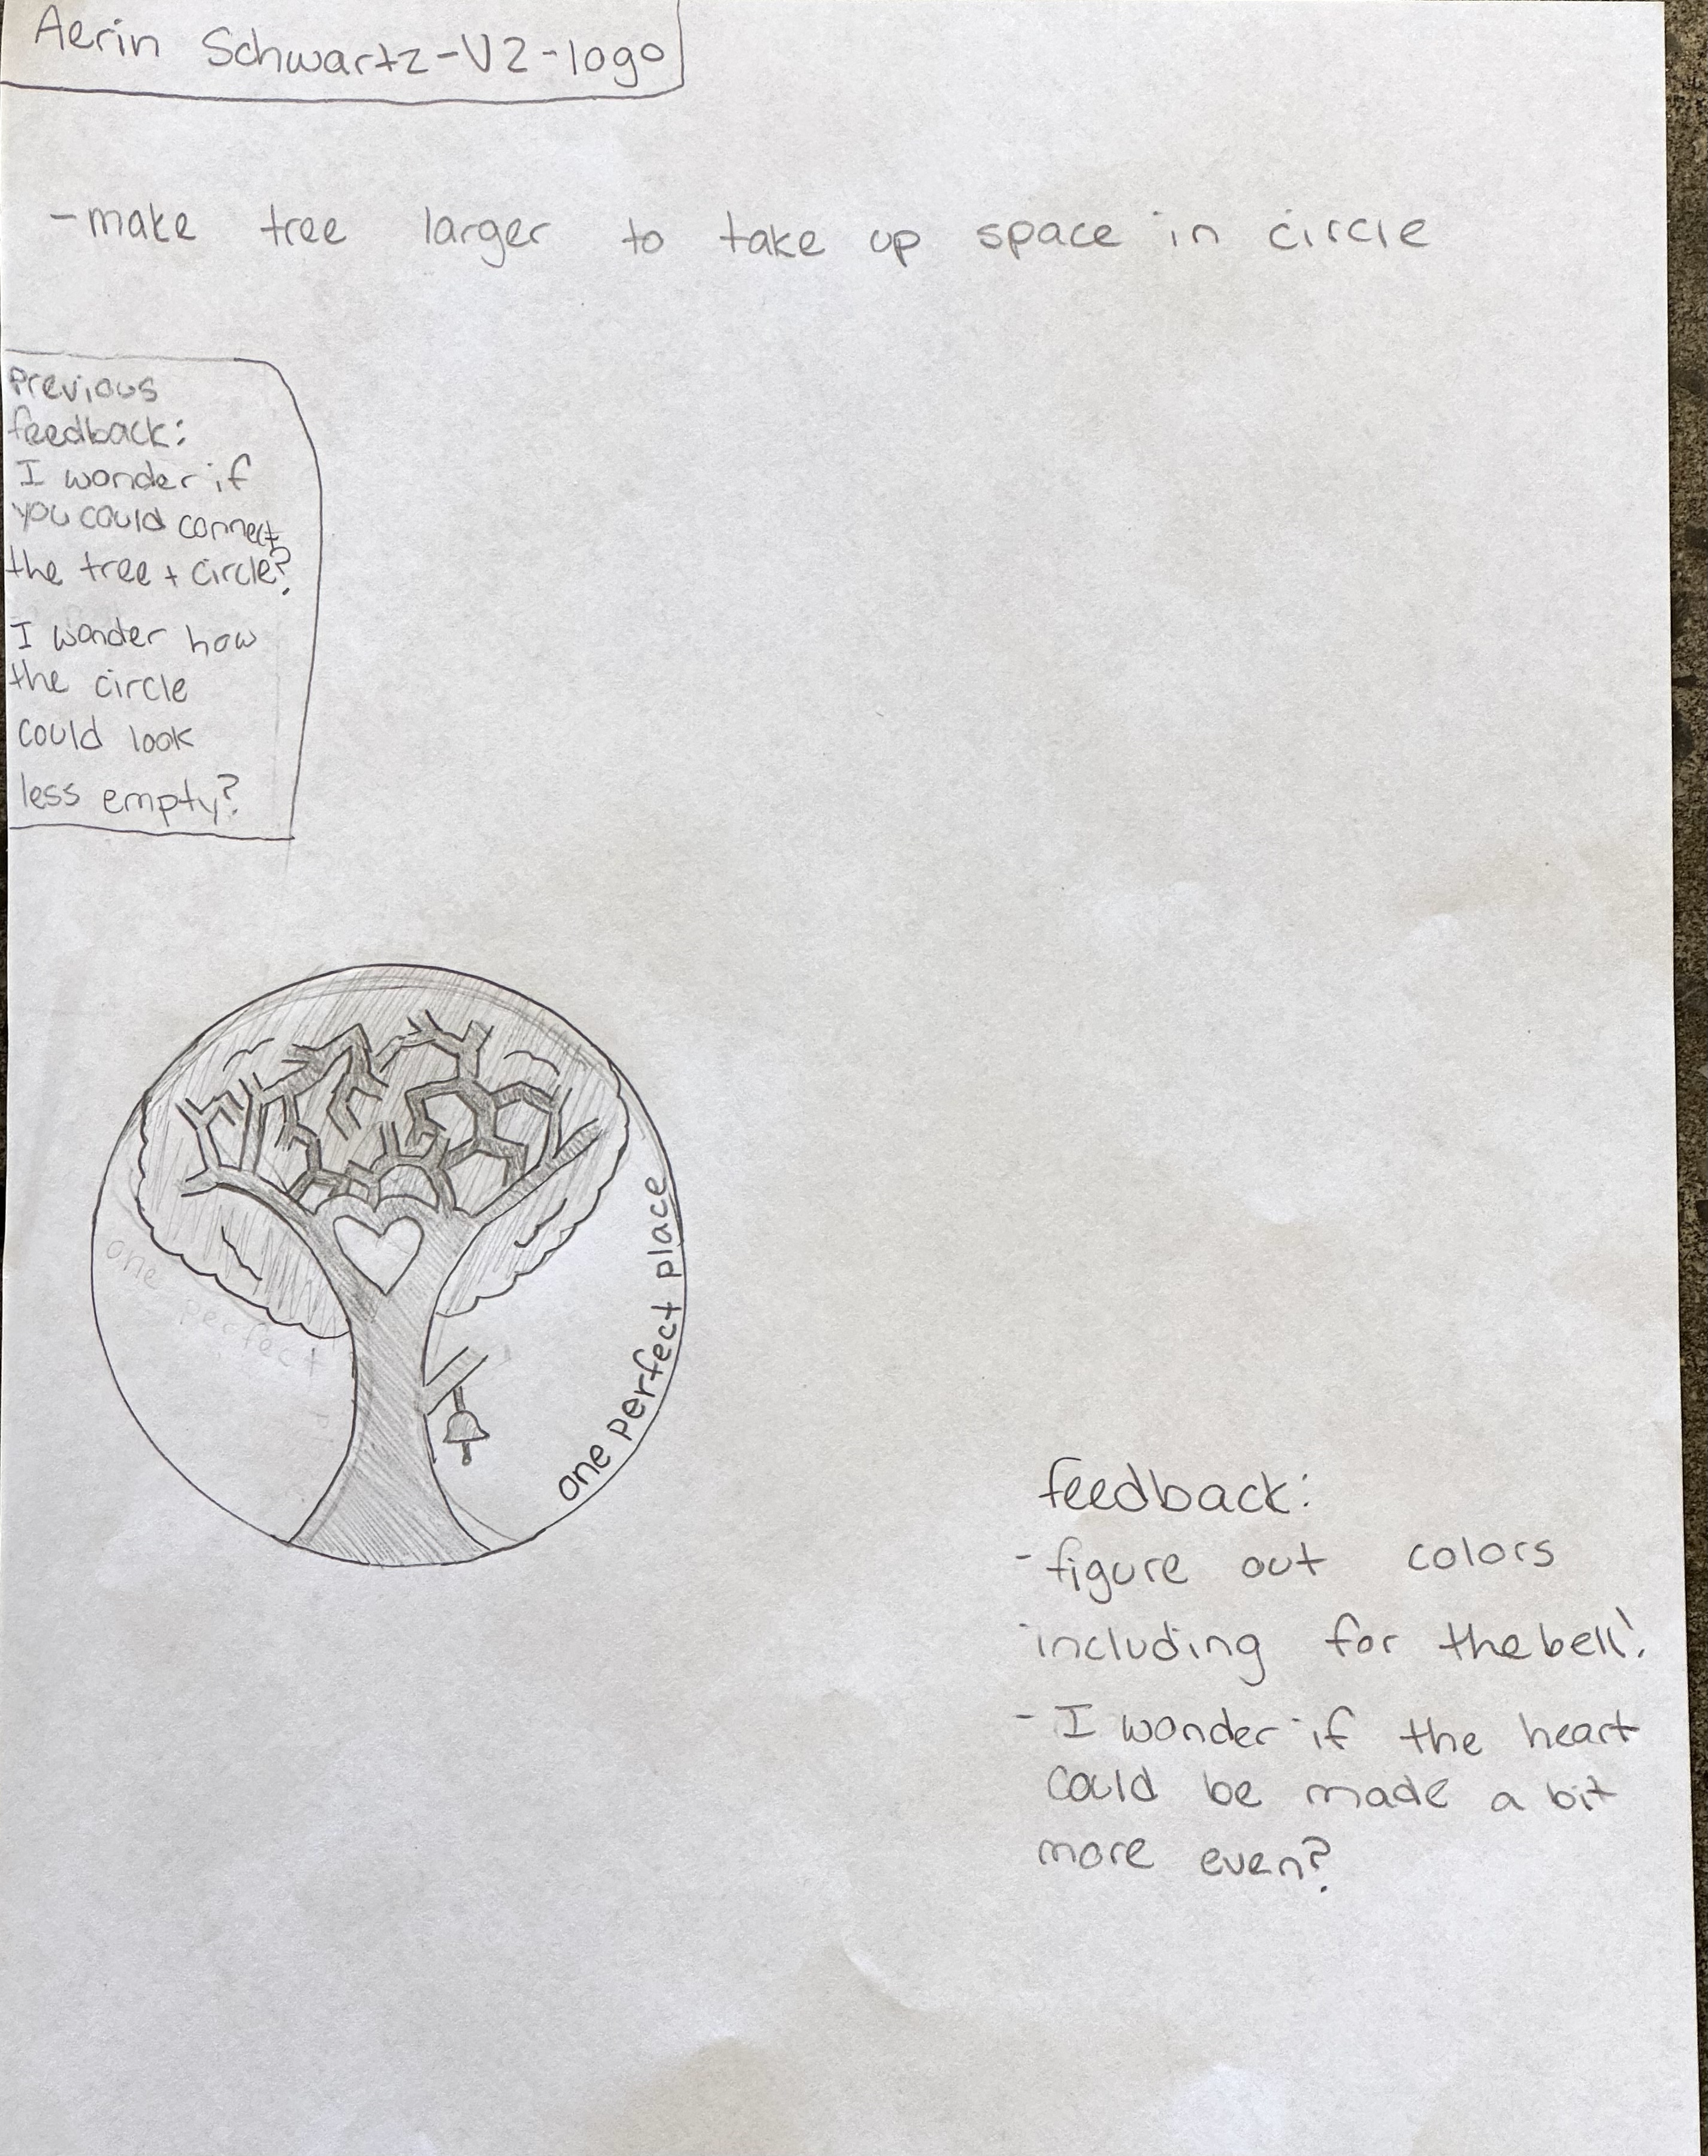 Aerin Schwartz-V2-logo
-make tree larger to take up space in circle
Previous
feedback:
I wonder if
you could connect
the tree + circle?
I wonder how
the circle
could look
less empty?
one perfect
one perfect place
feedback:
-figure out colors
including for the bell!
-I wonder if the heart
could be made a bit
more even?